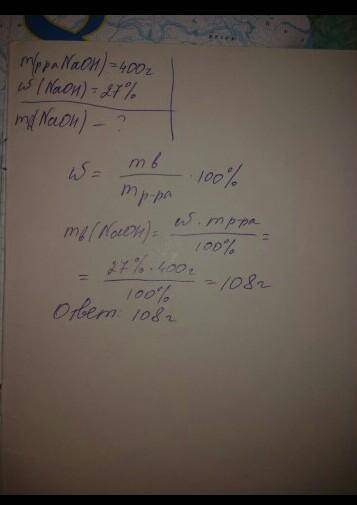 m(р-ра NaOH) = 400г
ω (NaOH) = 27%
m(NaOH) - ?
ω = mв / mр-ра · 100%
mв (NaOH) = ω · mр-ра / 100% =
= 27% · 400г / 100% = 108г
Ответ: 108г